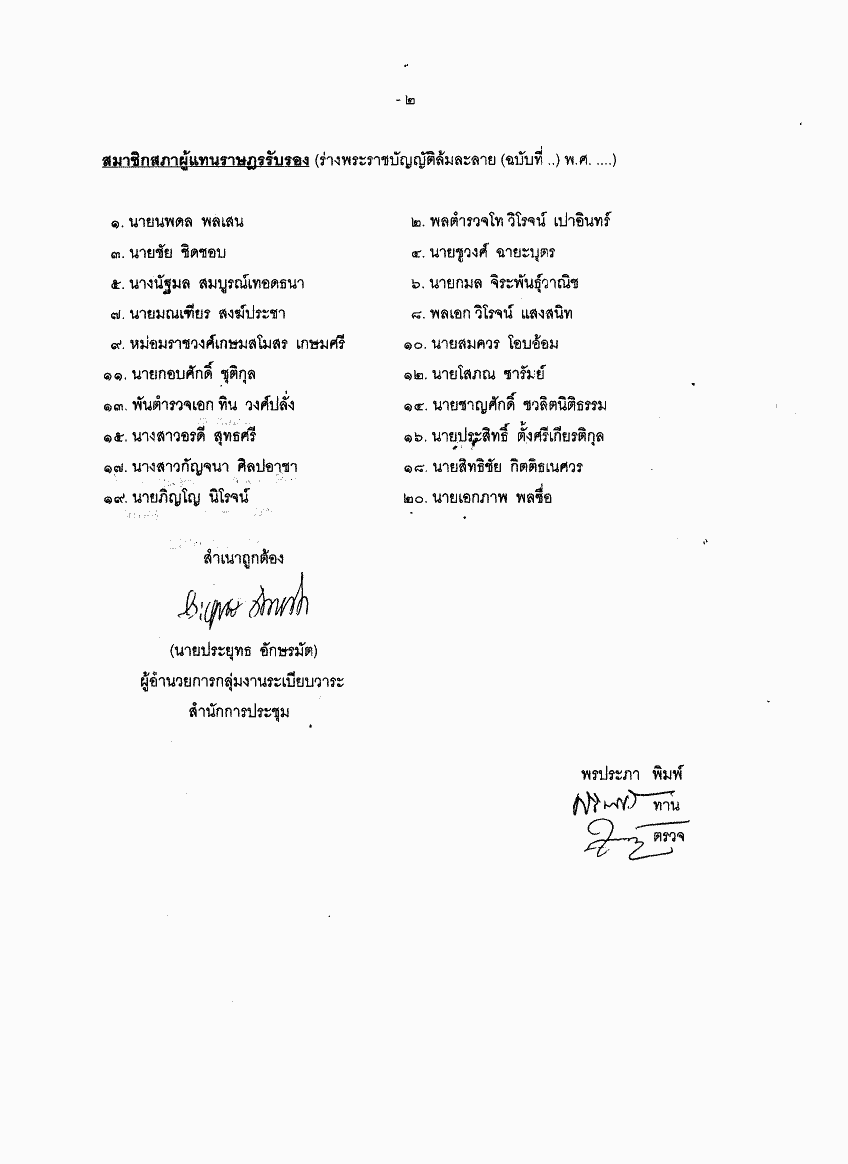 - ๒
สมาชิกสภาผู้แทนราษฎรรับรอง (ร่างพระราชบัญญัติล้มละลาย (ฉบับที่ ..) พ.ศ. ....)
๑. นายนพดล พลเสน ๒. พลตำรวจโท วิโรจน์ เปาอินทร์
๓. นายชัย ชิดชอบ ๔. นายชูวงศ์ ฉายะบุตร
๕. นางนัฐมล สมบูรณ์เทอดธนา ๖. นายกมล จิระพันธุ์วาณิช
๗. นายมณเฑียร สงฆ์ประชา ๘. พลเอก วิโรจน์ แสงสนิท
๙. หม่อมราชวงศ์เกษมสโมสร เกษมศรี ๑๐. นายสมควร โอบอ้อม
๑๑. นายกอบศักดิ์ ชุติกุล ๑๒. นายโสภณ ซารัมย์
๑๓. พันตำรวจเอก ทิน วงศ์ปลั่ง ๑๔. นายชาญศักดิ์ ชวลิตนิติธรรม
๑๕. นางสาวอรดี สุทธศรี ๑๖. นายประสิทธิ์ ตั้งศรีเกียรติกุล
๑๗. นางสาวกัญจนา ศิลปอาชา ๑๘. นายสิทธิชัย กิตติธเนศวร
๑๙. นายภิญโญ นิโรจน์ ๒๐. นายเอกภาพ พลซื่อ
สำเนาถูกต้อง
(นายประยุทธ อักษรมัต)
ผู้อำนวยการกลุ่มงานระเบียบวาระ
สำนักการประชุม
พรประภา พิมพ์
ทาน
ตรวจ